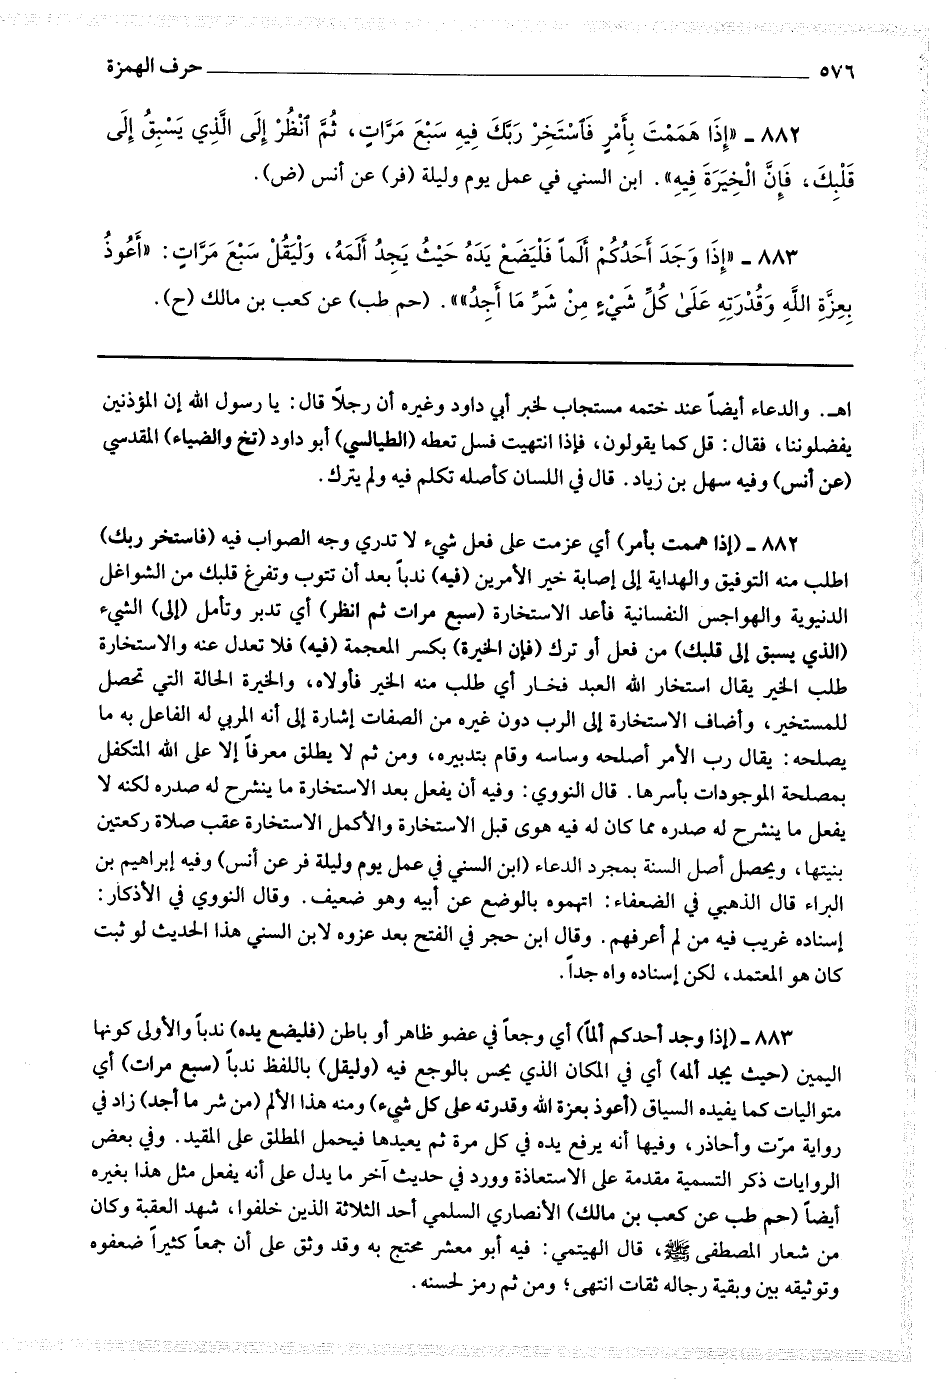 ٥٧٦ حرف الهمزة
٨٨٢ ـ «إِذَا هَمَمْتَ بِأَمْرٍ فَاسْتَخِرْ رَبَّكَ فِيهِ سَبْعَ مَرَّاتٍ، ثُمَّ ٱنْظُرْ إِلَى الَّذِي يَسْبِقُ إِلَى
قَلْبِكَ، فَإِنَّ الْخِيَرَةَ فِيهِ». ابن السني في عمل يوم وليلة (فر) عن أنس (ض).
٨٨٣ ـ «إِذَا وَجَدَ أَحَدُكُمْ أَلَماً فَلْيَضَعْ يَدَهُ حَيْثُ يَجِدُ أَلَمَهُ، وَلْيَقُلْ سَبْعَ مَرَّاتٍ: «أَعُوذُ
بِعِزَّةِ اللَّهِ وَقُدْرَتِهِ عَلَىٰ كُلِّ شَيْءٍ مِنْ شَرِّ مَا أَجِدُ»». (حم طب) عن كعب بن مالك (ح).
اهـ. والدعاء أيضاً عند ختمه مستجاب لخبر أبي داود وغيره أن رجلاً قال: يا رسول الله إن المؤذنين
يفضلوننا، فقال: قل كما يقولون، فإذا انتهيت فسل تعطه (الطيالسي) أبو داود (تخ والضياء) المقدسي
(عن أنس) وفيه سهل بن زياد. قال في اللسان كأصله تكلم فيه ولم يترك.
٨٨٢ ـ (إذا هممت بأمر) أي عزمت على فعل شيء لا تدري وجه الصواب فيه (فاستخر ربك)
اطلب منه التوفيق والهداية إلى إصابة خير الأمرين (فيه) ندباً بعد أن تتوب وتفرغ قلبك من الشواغل
الدنيوية والهواجس النفسانية فأعد الاستخارة (سبع مرات ثم انظر) أي تدبر وتأمل (إلى) الشيء
(الذي يسبق إلى قلبك) من فعل أو ترك (فإن الخيرة) بكسر المعجمة (فيه) فلا تعدل عنه والاستخارة
طلب الخير يقال استخار الله العبد فخار أي طلب منه الخير فأولاه، والخيرة الحالة التي تحصل
للمستخير، وأضاف الاستخارة إلى الرب دون غيره من الصفات إشارة إلى أنه المربي له الفاعل به ما
يصلحه: يقال رب الأمر أصلحه وساسه وقام بتدبيره، ومن ثم لا يطلق معرفاً إلا على الله المتكفل
بمصلحة الموجودات بأسرها. قال النووي: وفيه أن يفعل بعد الاستخارة ما ينشرح له صدره لكنه لا
يفعل ما ينشرح له صدره مما كان له فيه هوى قبل الاستخارة والأكمل الاستخارة عقب صلاة ركعتين
بنيتها، ويحصل أصل السنة بمجرد الدعاء (ابن السني في عمل يوم وليلة فر عن أنس) وفيه إبراهيم بن
البراء قال الذهبي في الضعفاء: اتهموه بالوضع عن أبيه وهو ضعيف. وقال النووي في الأذكار:
إسناده غريب فيه من لم أعرفهم. وقال ابن حجر في الفتح بعد عزوه لابن السني هذا الحديث لو ثبت
كان هو المعتمد، لكن إسناده واه جداً.
٨٨٣ ـ (إذا وجد أحدكم ألماً) أي وجعاً في عضو ظاهر أو باطن (فليضع يده) ندباً والأولى كونها
اليمين (حيث يجد ألمه) أي في المكان الذي يحس بالوجع فيه (وليقل) باللفظ ندباً (سبع مرات) أي
متواليات كما يفيده السياق (أعوذ بعزة الله وقدرته على كل شيء) ومنه هذا الألم (من شر ما أجد) زاد في
رواية مرّت وأحاذر، وفيها أنه يرفع يده في كل مرة ثم يعيدها فيحمل المطلق على المقيد. وفي بعض
الروايات ذكر التسمية مقدمة على الاستعاذة وورد في حديث آخر ما يدل على أنه يفعل مثل هذا بغيره
أيضاً (حم طب عن كعب بن مالك) الأنصاري السلمي أحد الثلاثة الذين خلفوا، شهد العقبة وكان
من شعار المصطفى ﷺ، قال الهيتمي: فيه أبو معشر محتج به وقد وثق على أن جمعاً كثيراً ضعفوه
وتوثيقه بين وبقية رجاله ثقات انتهى؛ ومن ثم رمز لحسنه.